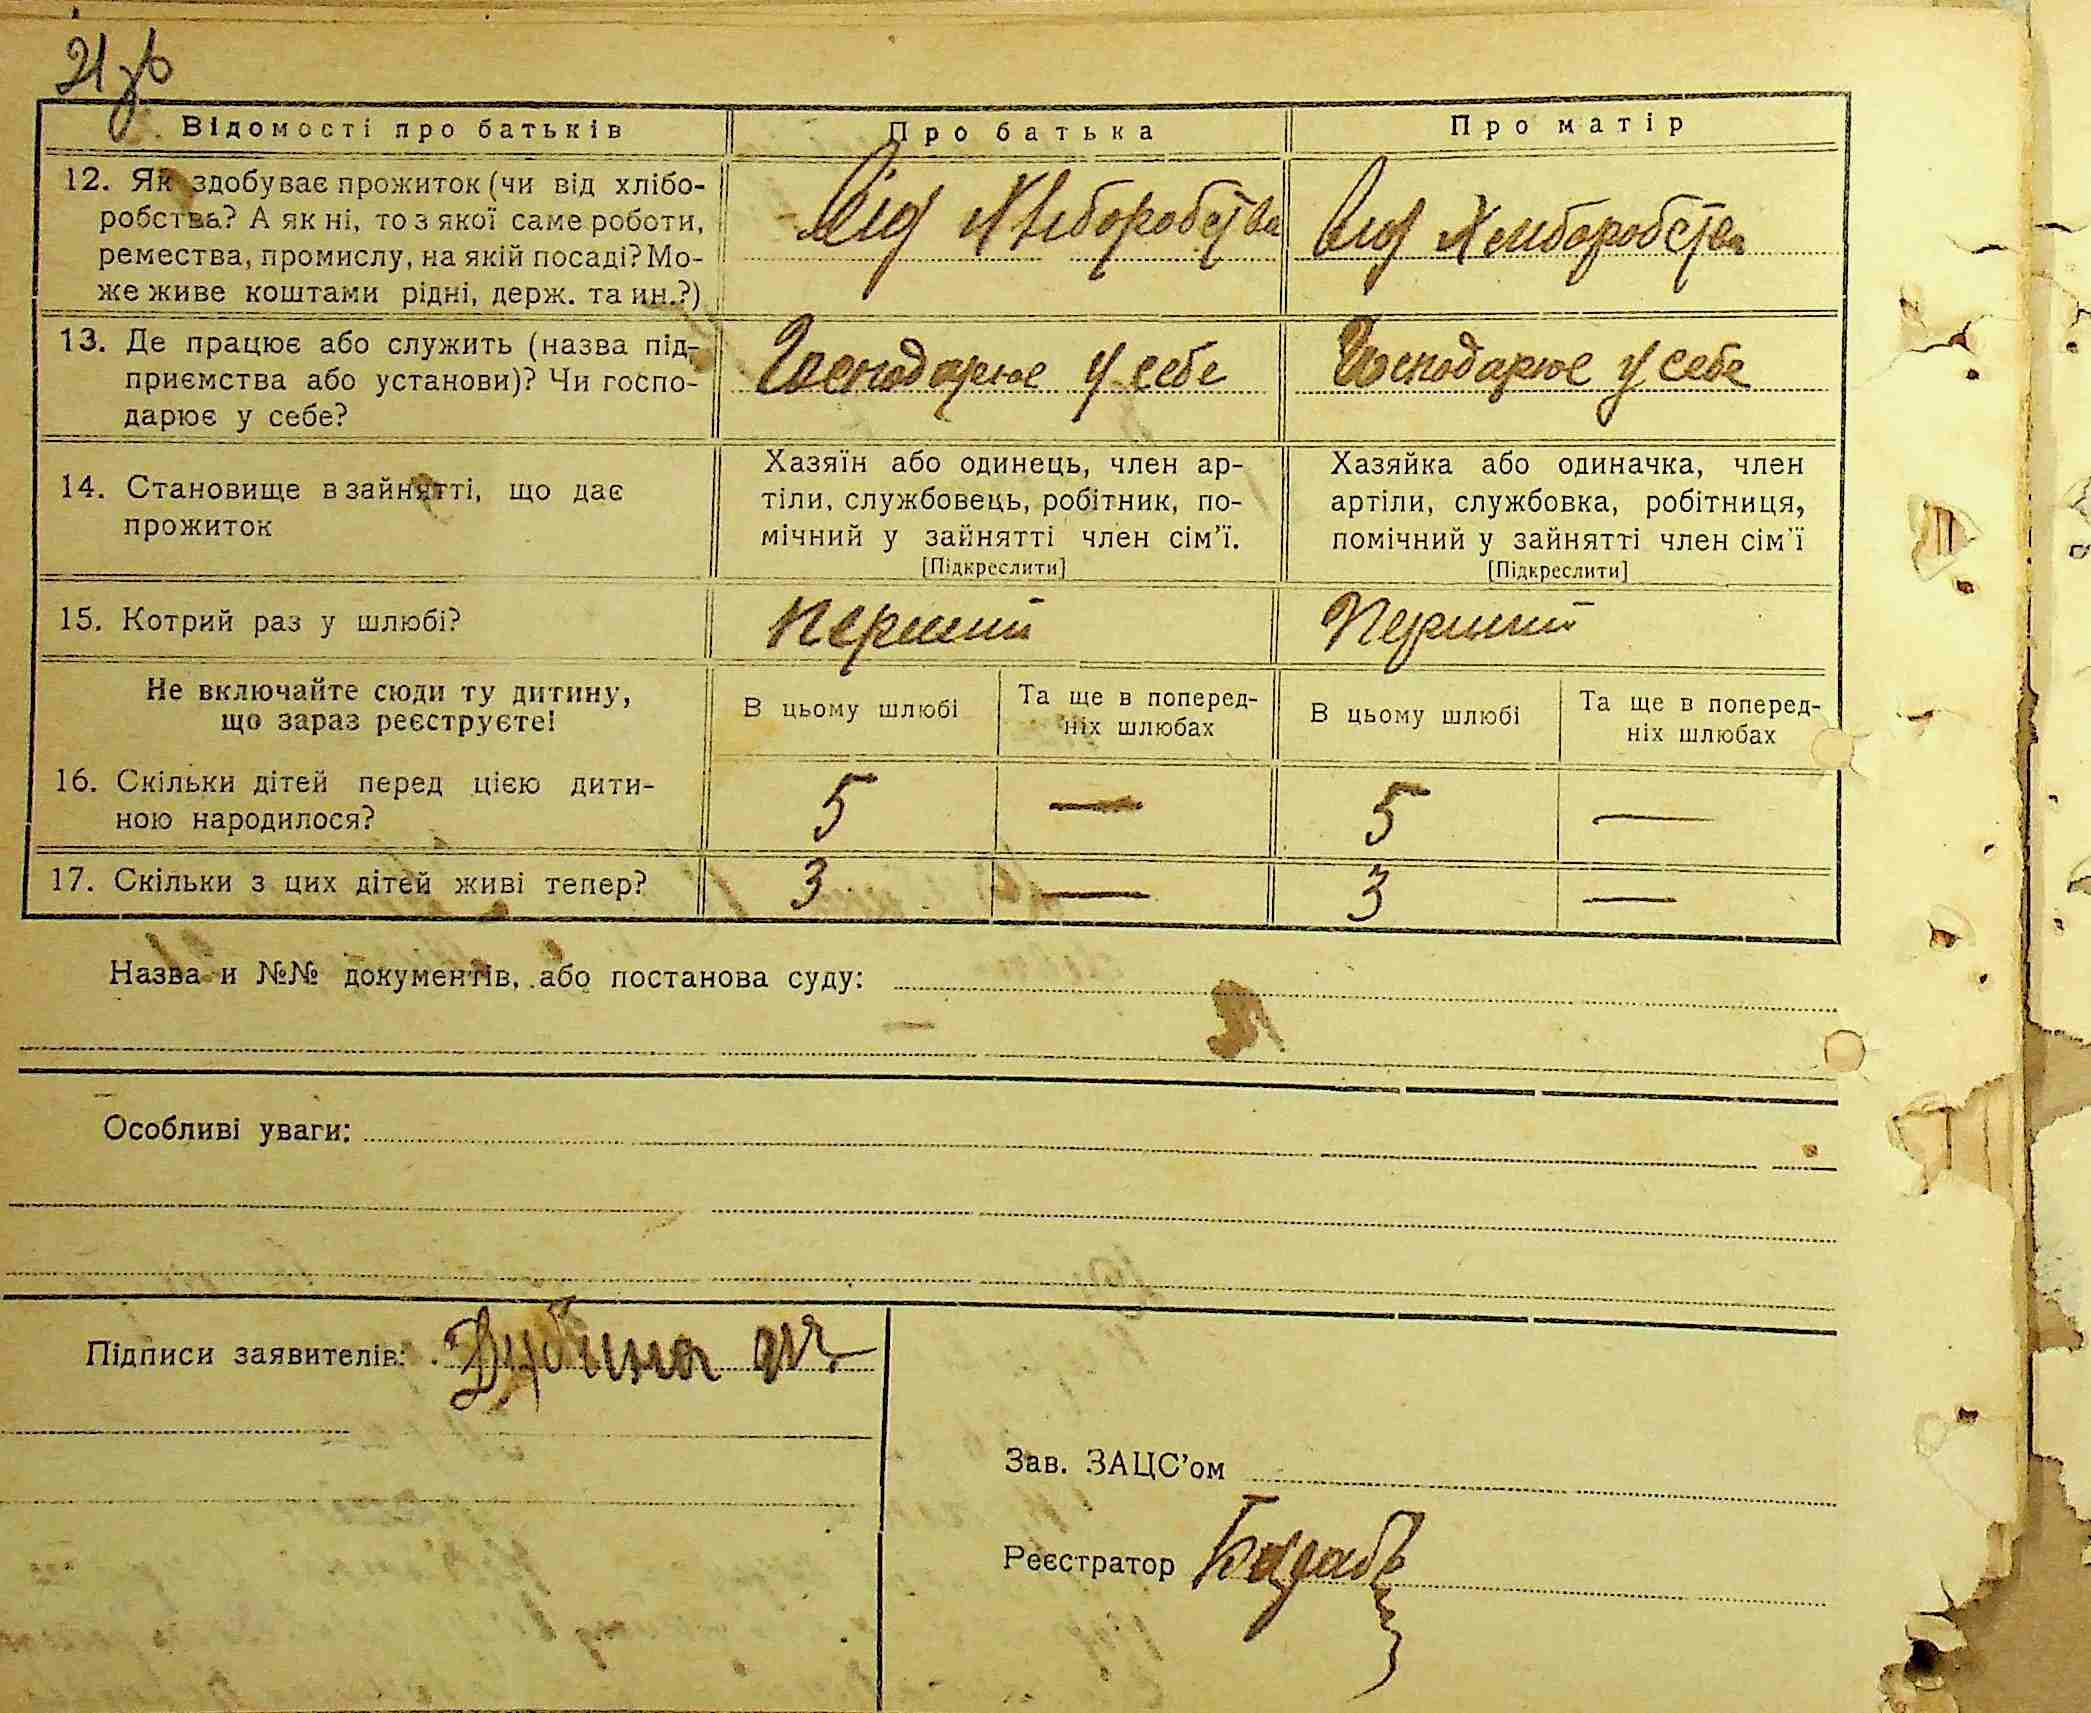 21 зв
Відомості про батьків
Про батька
Про матір
12. Як здобуває прожиток (чи від хлібо-
робства? А як ні, то з якої саме роботи,
ремества, промислу, на якій посаді? Мо-
же живе коштами рідні, держ. та ин.?)
Від Хліборобства
Від Хлиборобства
13. Де працює або служить (назва під-
приємства або установи)? Чи госпо-
дарює у себе?
Господарює у себе
Господарює у себе
14. Становище в зайнятті, що дає
прожиток
Хазяїн або одинець, член ар-
тіли, службовець, робітник, по-
мічний у зайнятті член сім'ї.
[Підкреслити]
Хазяйка або одиначка, член
артіли, службовка, робітниця,
помічний у зайнятті член сім'ї
[Підкреслити]
15. Котрий раз у шлюбі?
Перший
Перший
Не включайте сюди ту дитину,
що зараз реєструєте!
В цьому шлюбі
Та ще в поперед-
ніх шлюбах
В цьому шлюбі
Та ще в поперед-
ніх шлюбах
16. Скільки дітей перед цією дити-
ною народилося?
5 — 5 —
17. Скільки з цих дітей живі тепер?
3 — 3 —
Назва и №№ документів, або постанова суду:
—
Особливі уваги:
Підписи заявителів: Дубина
Зав. ЗАЦС'ом
Реєстратор